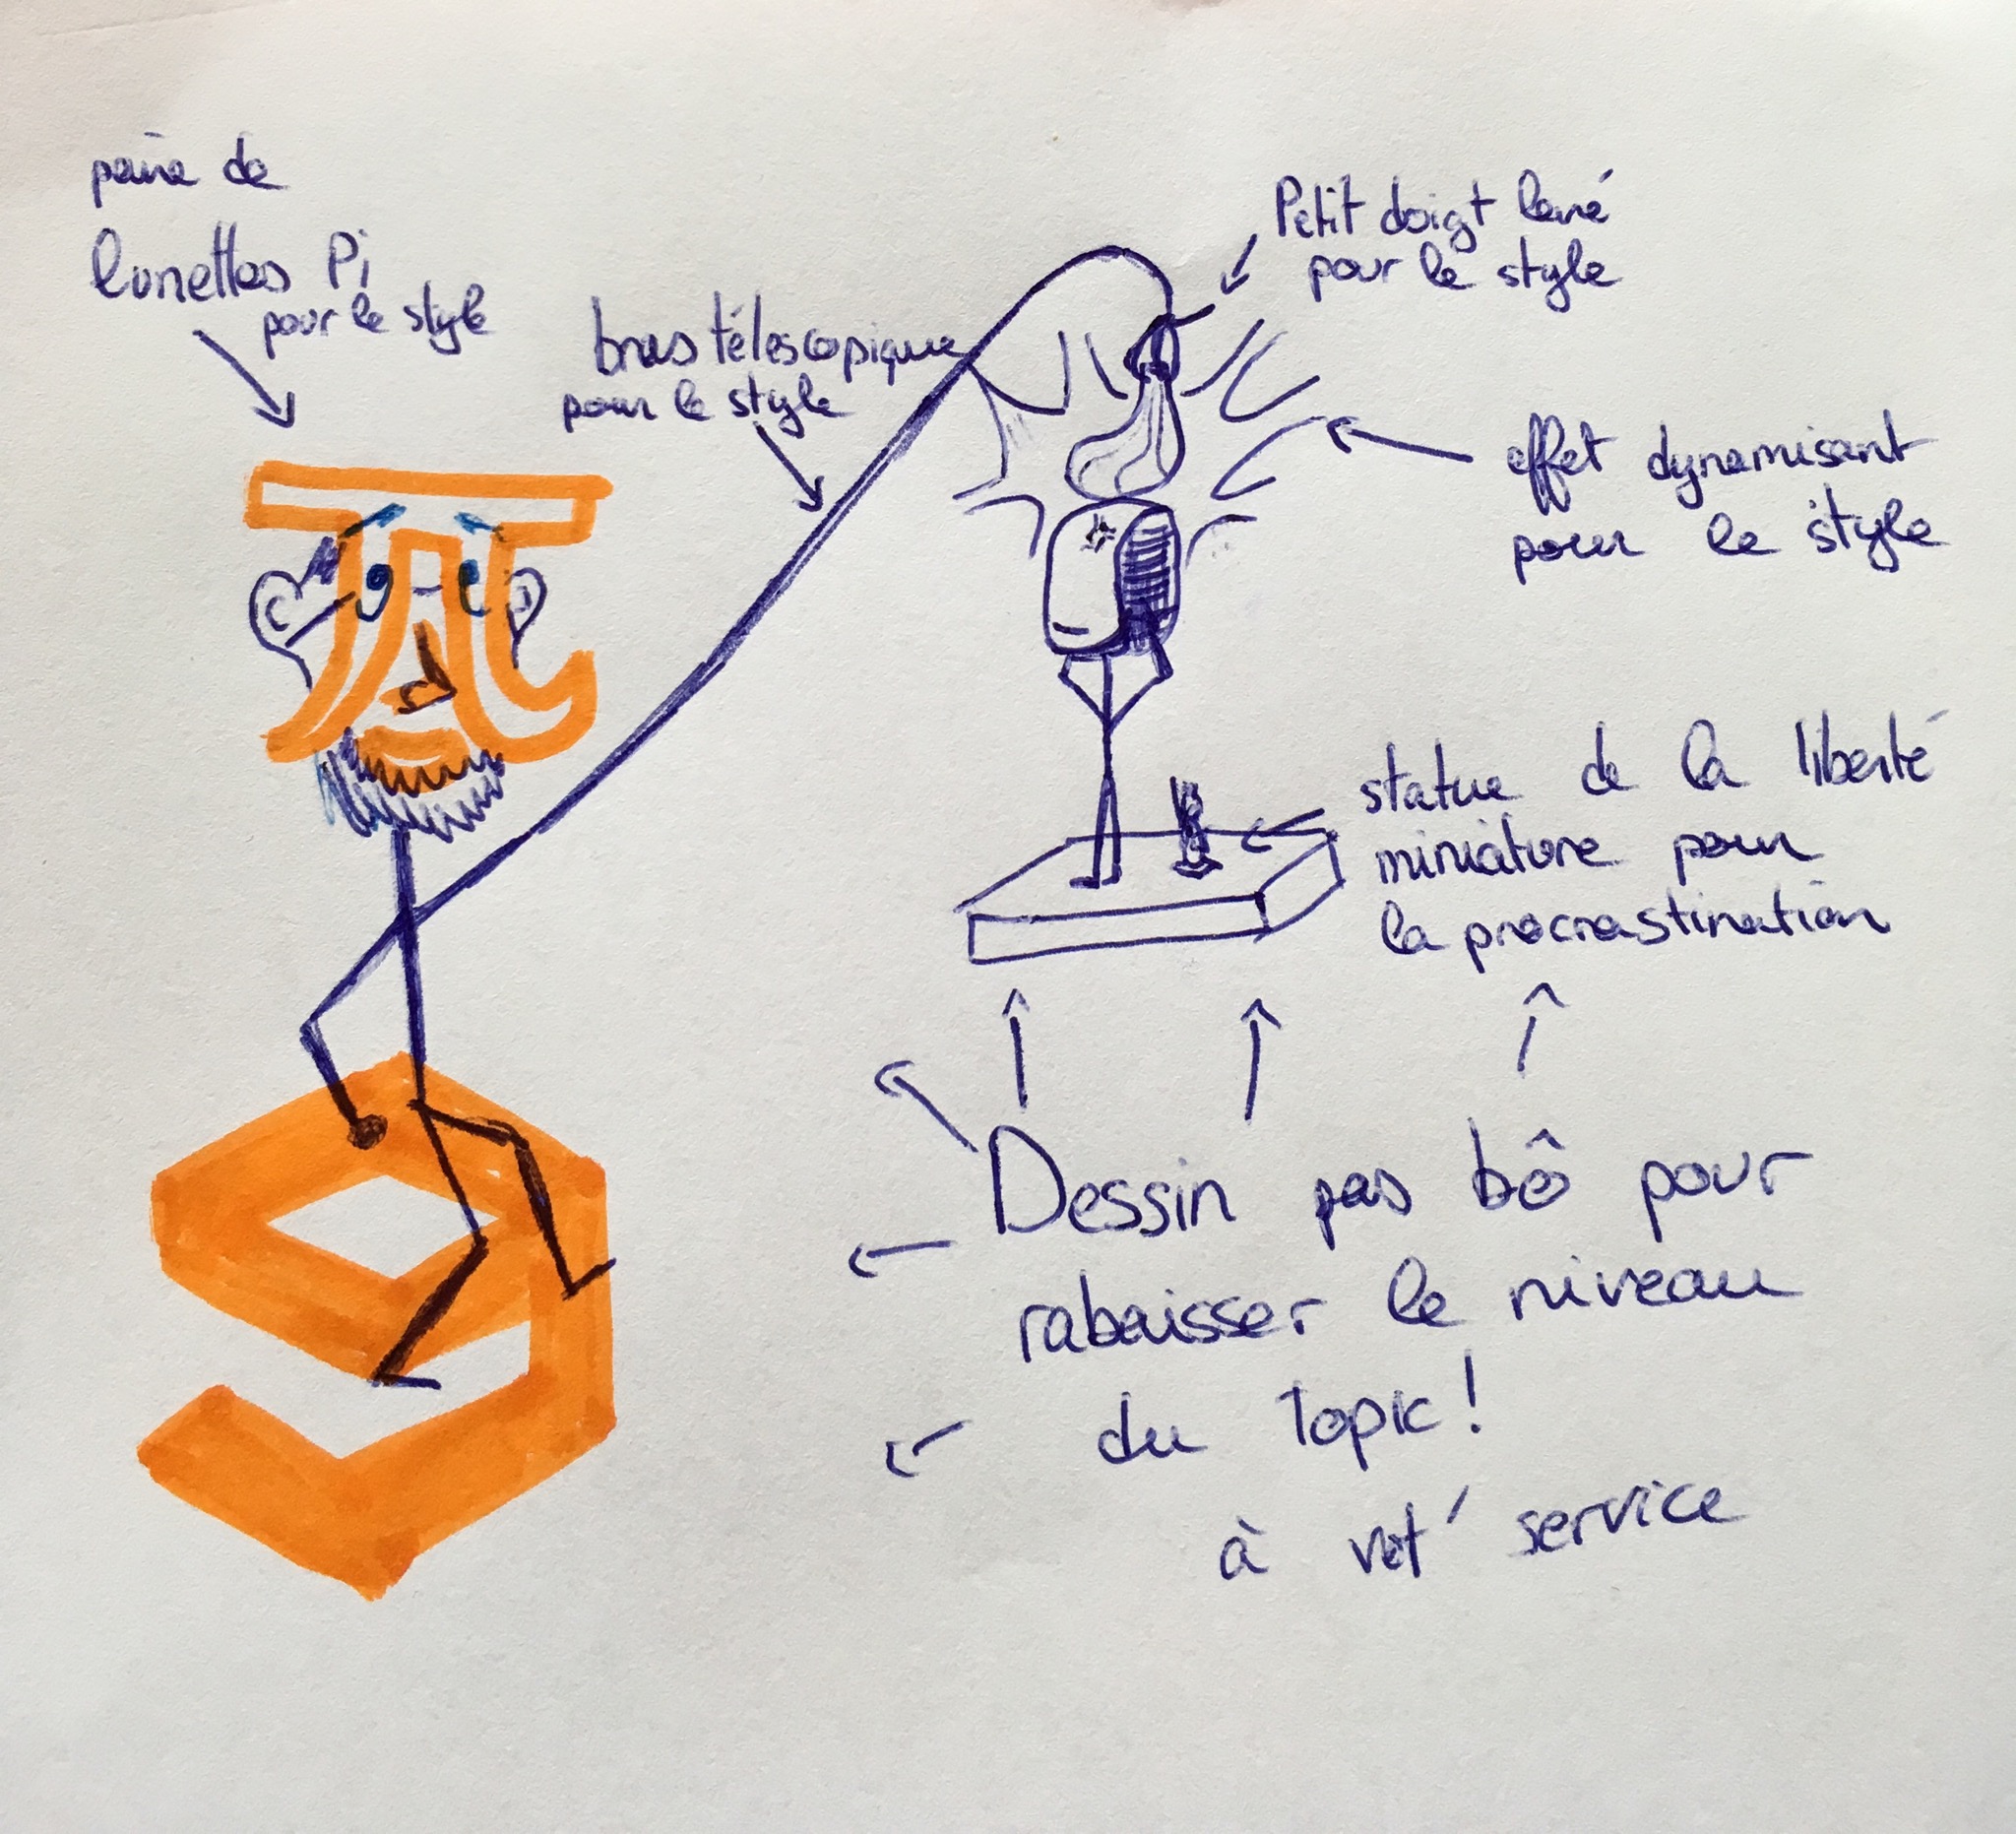 paire de
lunettes Pi
pour le style
bras télescopique
pour le style
Petit doigt levé
pour le style
effet dynamisant
pour le style
statue de la liberté
miniature pour
la procrastination
Dessin pas bô pour
rabaisser le niveau
du topic!
à vot' service